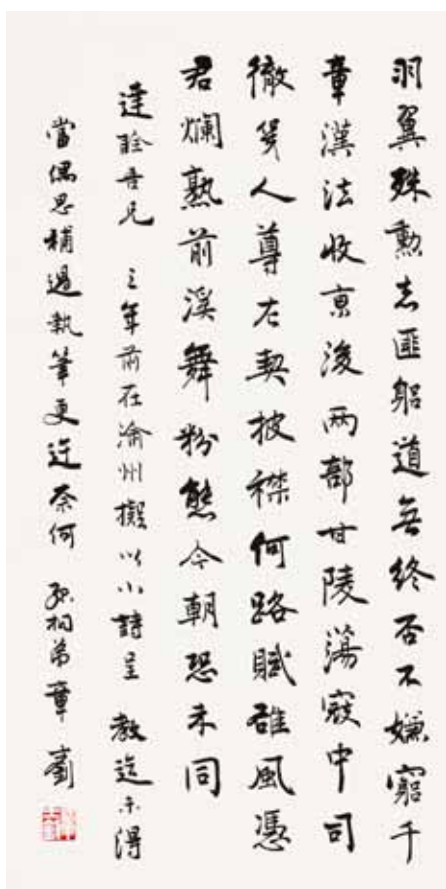 羽翼殊勳志匪躬道無終否不嫌窮千
章漢法收京後两部甘陵蕩寇中司
徹幾人尊左契披襟何路賦雄風憑
君爛熟前溪舞粉態今朝恐未同
達詮吾兄 三年前在渝州擬以小詩呈 教迄未得
當偶思補過執筆更迂奈何 孤桐弟章 釗